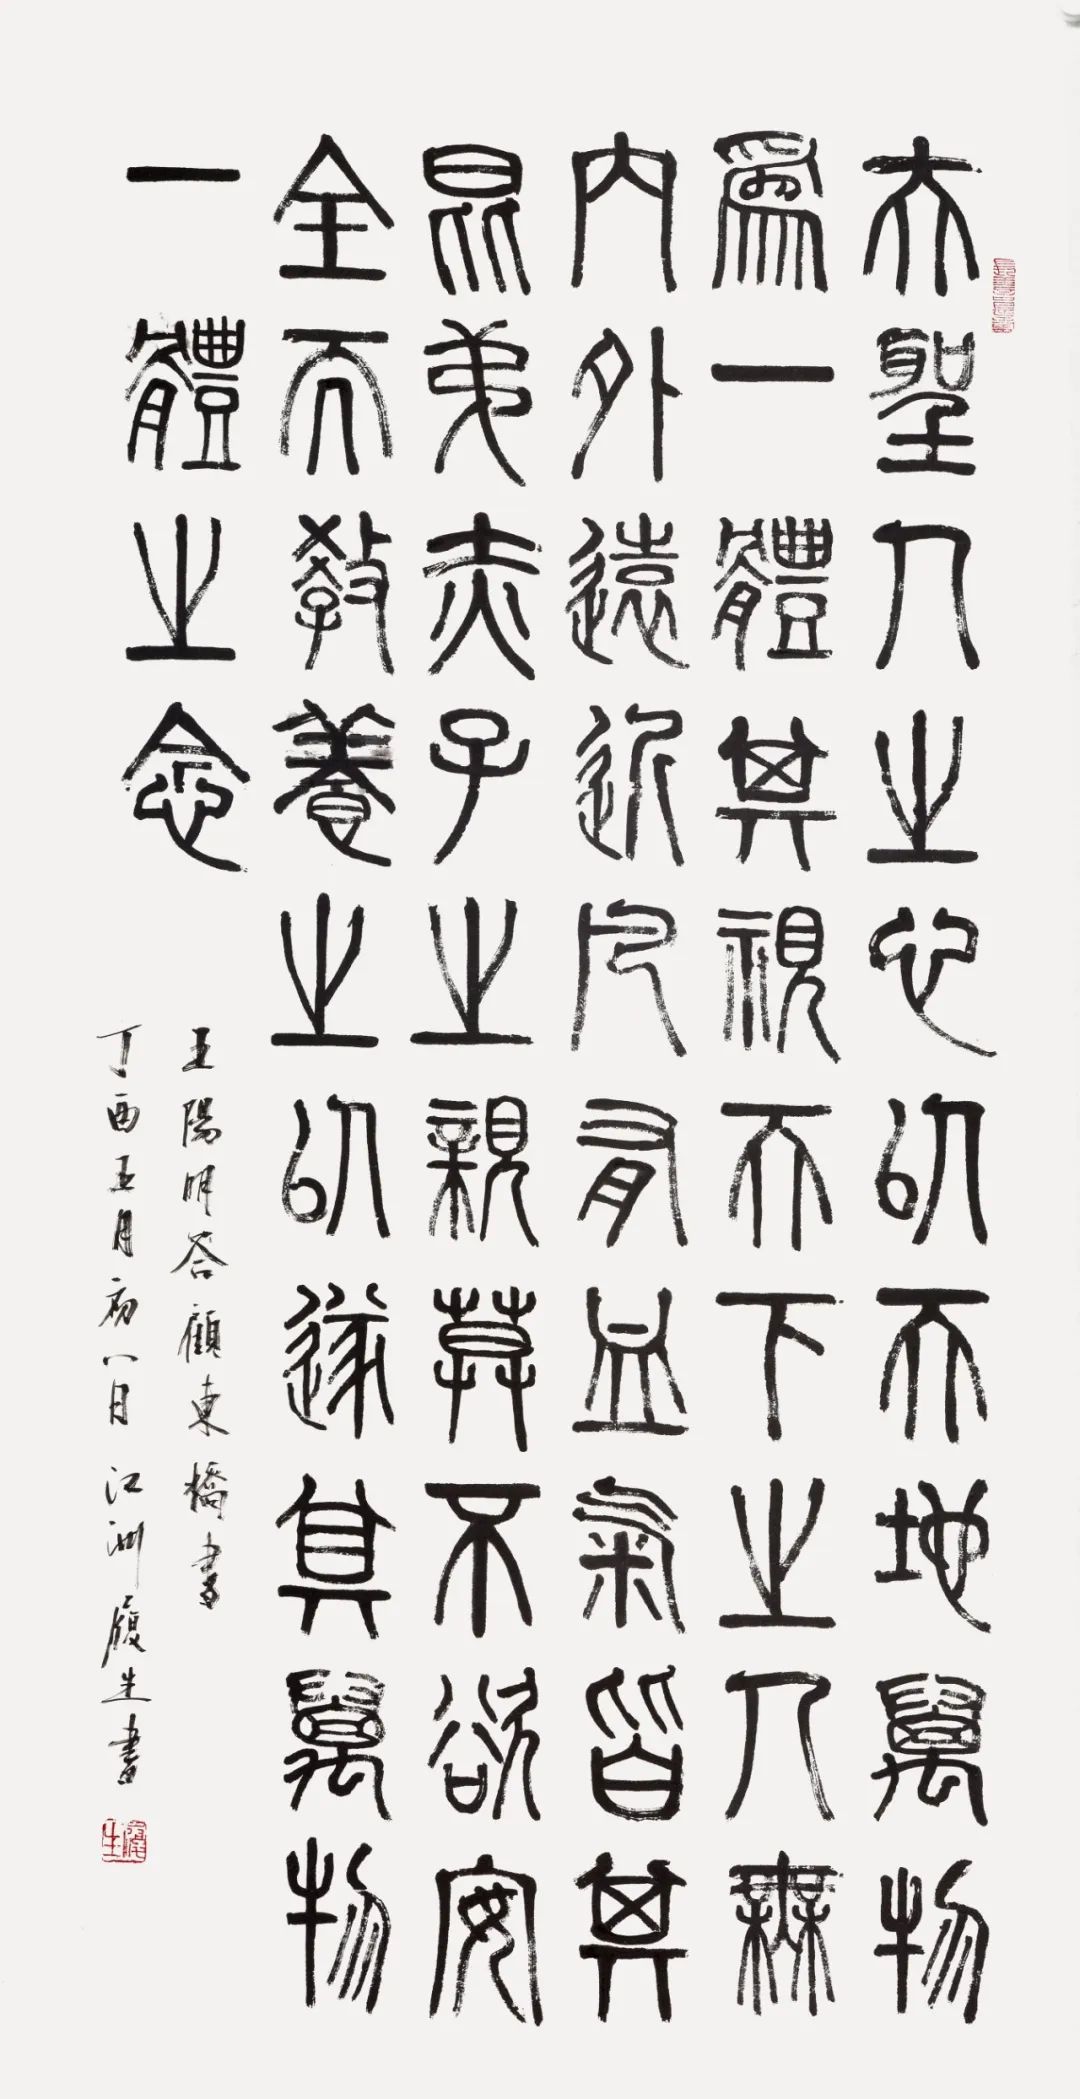 夫聖人之心以天地萬物
爲一體其視天下之人無
內外遠近凡有血氣皆其
昆弟赤子之親莫不欲安
全而教養之以遂其萬物
一體之念
王陽明答顧東橋書
丁酉五月初八日江洲履生書
履生